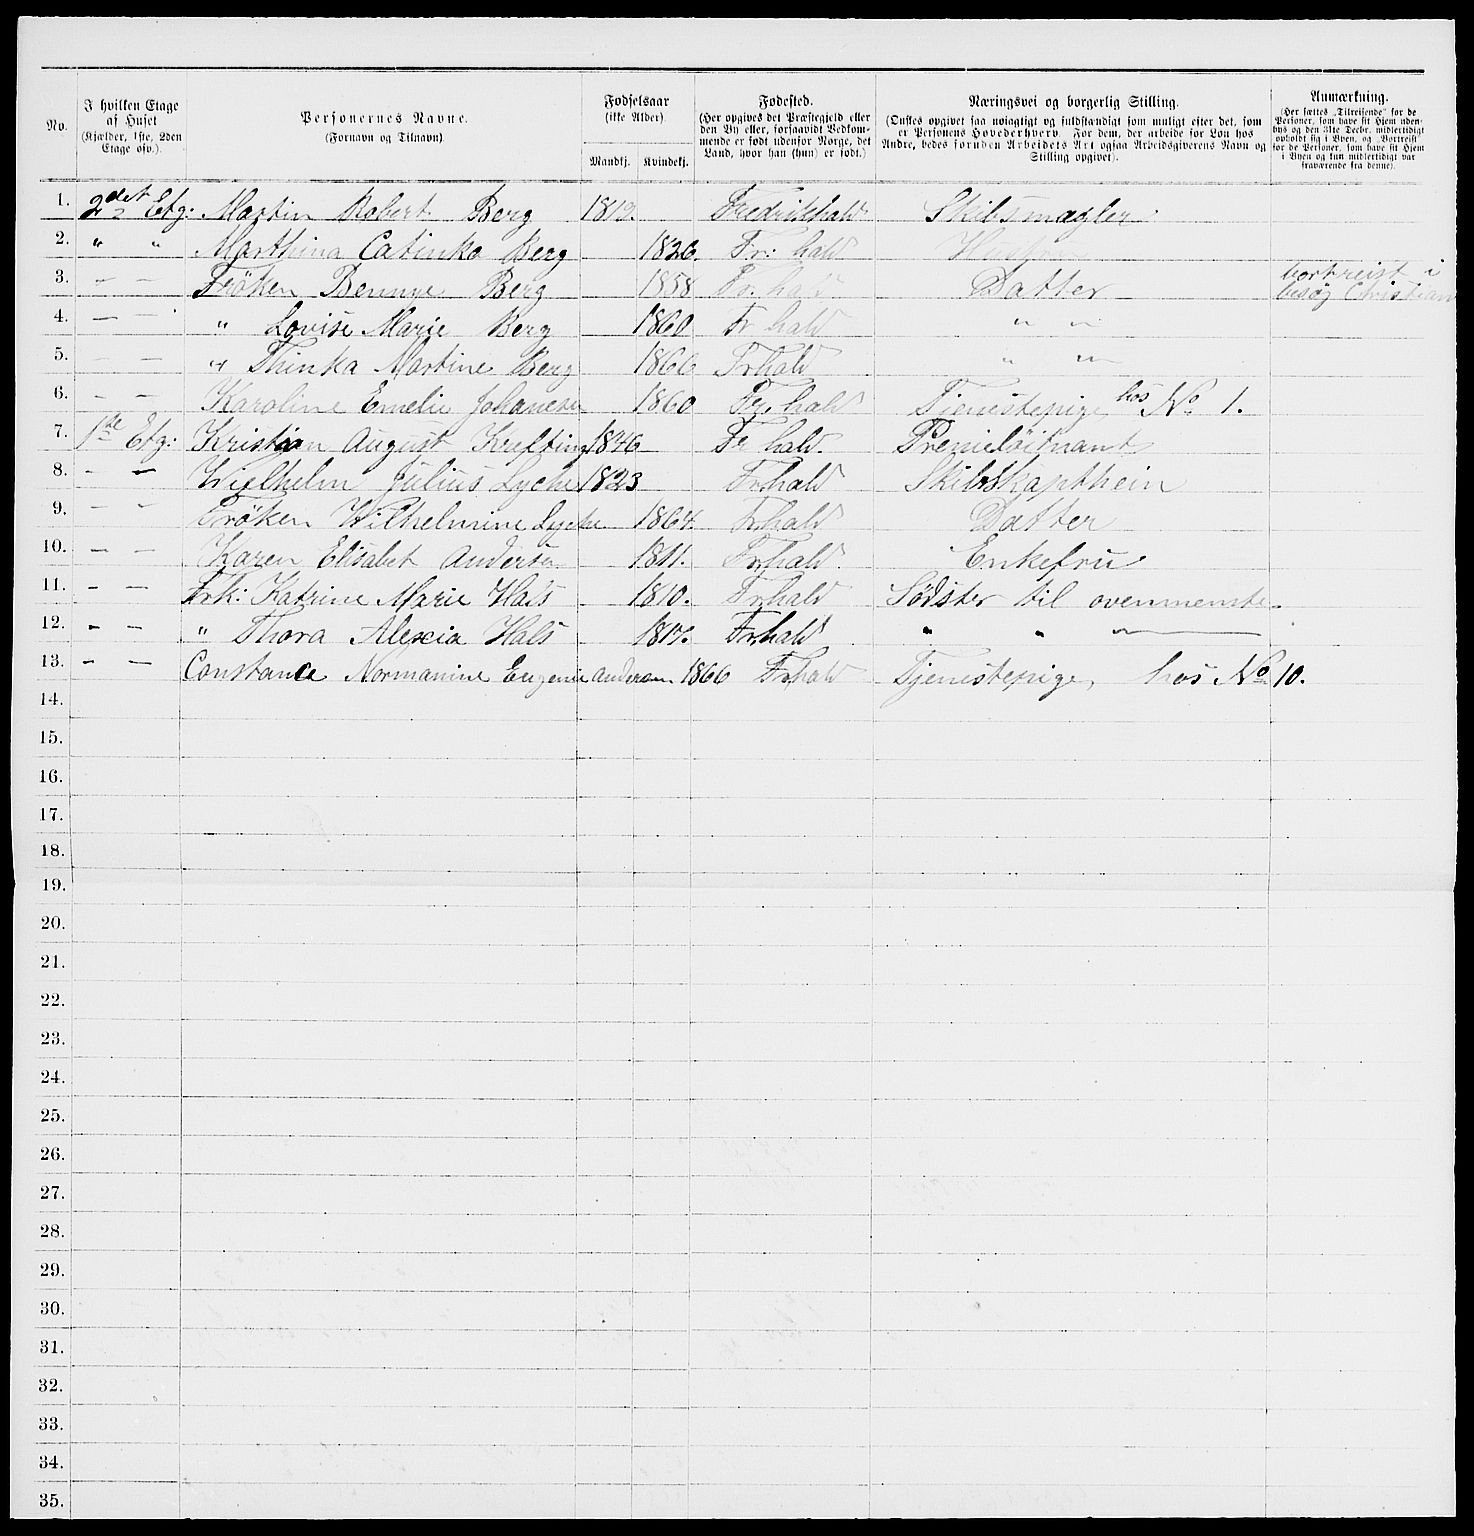 No. | I hvilken Etage af Huset (Kjælder, 1ste, 2den Etage osv.). | Personernes Navne. (Fornavn og Tilnavn). | Fødselsaar (ikke Alder). Mandkj. | Kvindekj. | Fødested. (Her opgives det Præstegjeld eller den By eller, forsaavidt Vedkommende er født udenfor Norge, det Land, hvor han (hun) er født.) | Næringsvei og borgerlig Stilling. (Ønskes opgivet saa nøiagtigt og fuldstændigt som muligt efter det, som er Personens Hovederhverv. For dem, der arbeide for Løn hos Andre, bedes foruden Arbeidets Art ogsaa Arbeidsgiverens Navn og Stilling opgivet). | Anmærkning. (Her sættes „Tilreisende“ for de Personer, som have sit Hjem udenbys og den 31te Decbr. midlertidigt opholdt sig i Byen, og „Bortreist“ for de Personer, som have sit Hjem i Byen og kun midlertidigt var fraværende fra denne).
1. 2det Etg: Martin Robert Berg Fredrikhald Skibsmægler
2. " " Marthina Catinka Berg 1826. Fr: hald Hustru
3. – – Frøken Bennye Berg 1858 Fr. hald Datter bortreist i besøg Christian
4. – – " Lovise Marie Berg 1860 Fr hald " "
5. – – " Thinka Martine Berg 1866 Frhald " "
6. – – Karoline Emelie Johanesen 1860 Fr. hald Tjenestepige hos No 1.
7. 1ste Etg: Kristian August Krefting 1846 Fr hald. Premieløitnant
8. – – Wielhelm Julius Lyche 1823 Frhald Skibskapthein
9. – – Frøken Wilhelmine Lyche 1864. Frhald Datter
10. – – Karen Elisabet Andersen 1811. Frhald. Enkefru
11. – – Frk: Katrine Marie Hals 1810. Frhald Sødster til ovenmenste.
12. – – " Thora Alexia Hals Frhald " " "
13. – – Constance Normanine Eugenie Andersen 1866 Frhald Tjenestepige, hos No 10.
14.
15.
16.
17.
18.
19.
20.
21.
22.
23.
24.
25.
26.
27.
28.
29.
30.
31.
32.
33.
34.
35.